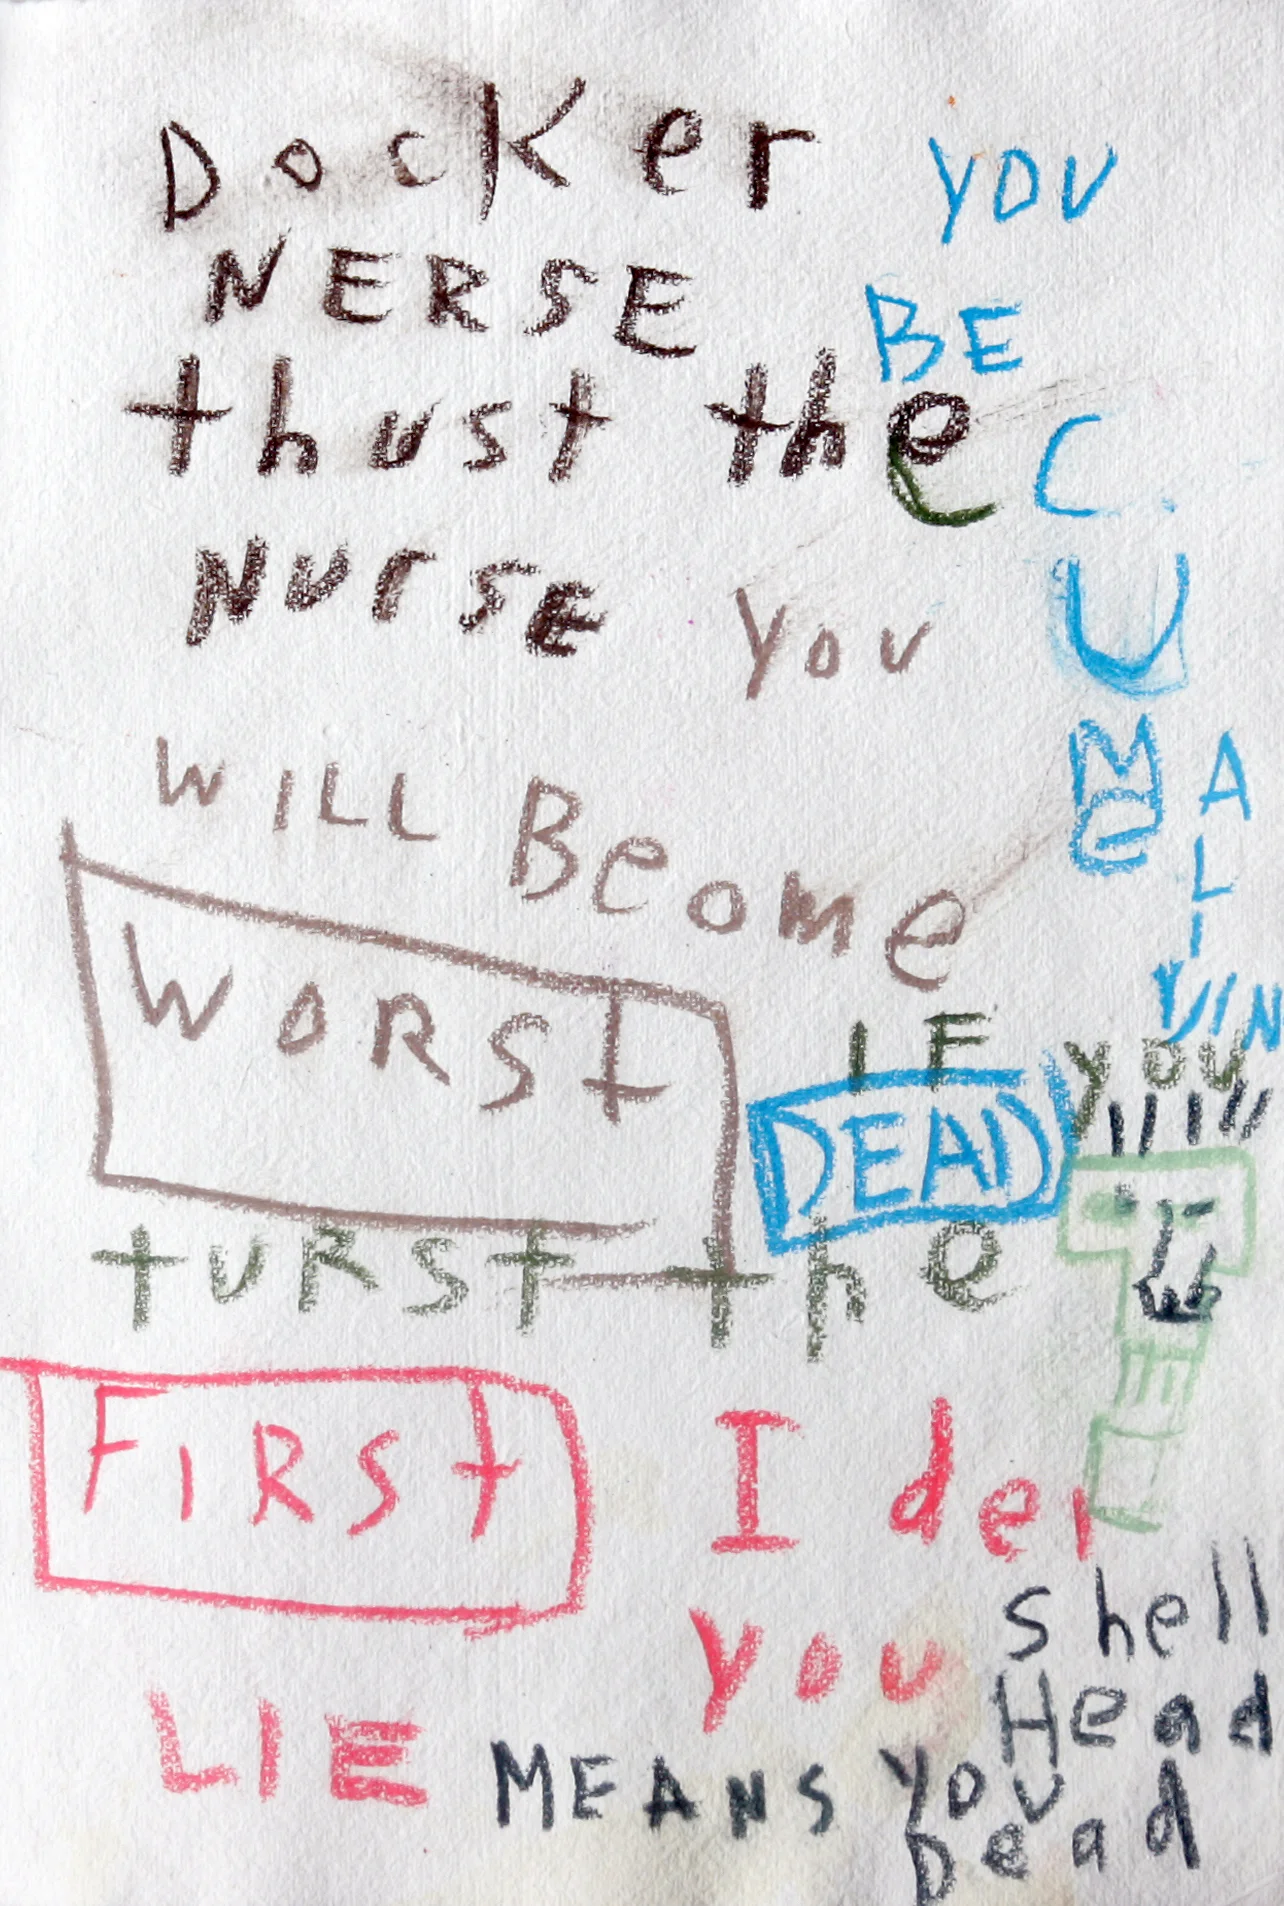 Docker
NERSE
thust the
Nurse You
WILL Beome
WORSt
IF YOU
tURSt the
FIRSt I der
you
LIE MEANS you
Dead
YOU
BE
C
U
Me
ALIVIN
DEAD
Shell
Head